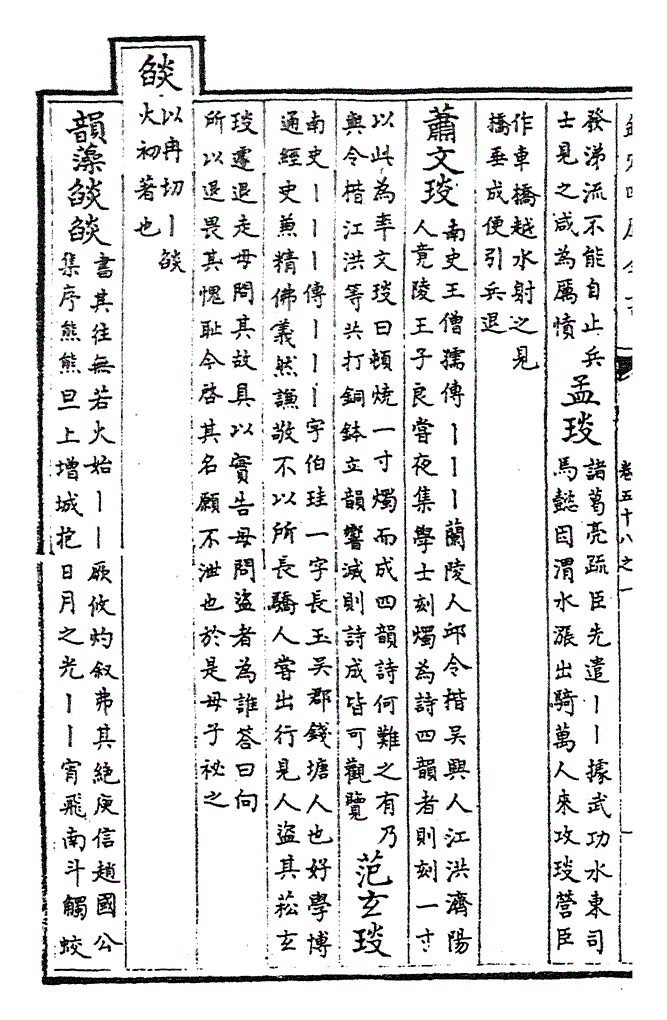 卷五十八之一
發涕流不能自止兵
士見之咸為厲憤
孟琰
諸葛亮疏臣先遣丨丨據武功水東司
馬懿因渭水漲出騎萬人來攻琰營臣
作車橋越水射之見
橋垂成便引兵退
蕭文琰
南史王僧孺傳丨丨丨蘭陵人邱令楷吳興人江洪濟陽
人竟陵王子良嘗夜集學士刻燭為詩四韻者則刻一寸
以此為率文琰曰頓燒一寸燭而成四韻詩何難之有乃
與令楷江洪等共打銅鉢立韻響滅則詩成皆可觀覽
范玄琰
南史丨丨丨傳丨丨丨字伯珪一字長玉吳郡錢塘人也好學博
通經史兼精佛義然謙敬不以所長驕人嘗出行見人盜其菘玄
琰遽退走母問其故具以實告母問盜者為誰答曰向
所以退畏其愧恥今啓其名願不泄也於是母子祕之
燄
以冉切丨燄
火初著也
韻藻燄燄
書其往無若火始丨丨厥攸灼叙弗其絕庾信趙國公
集序熊熊旦上增城抱日月之光丨丨宵飛南斗觸蛟